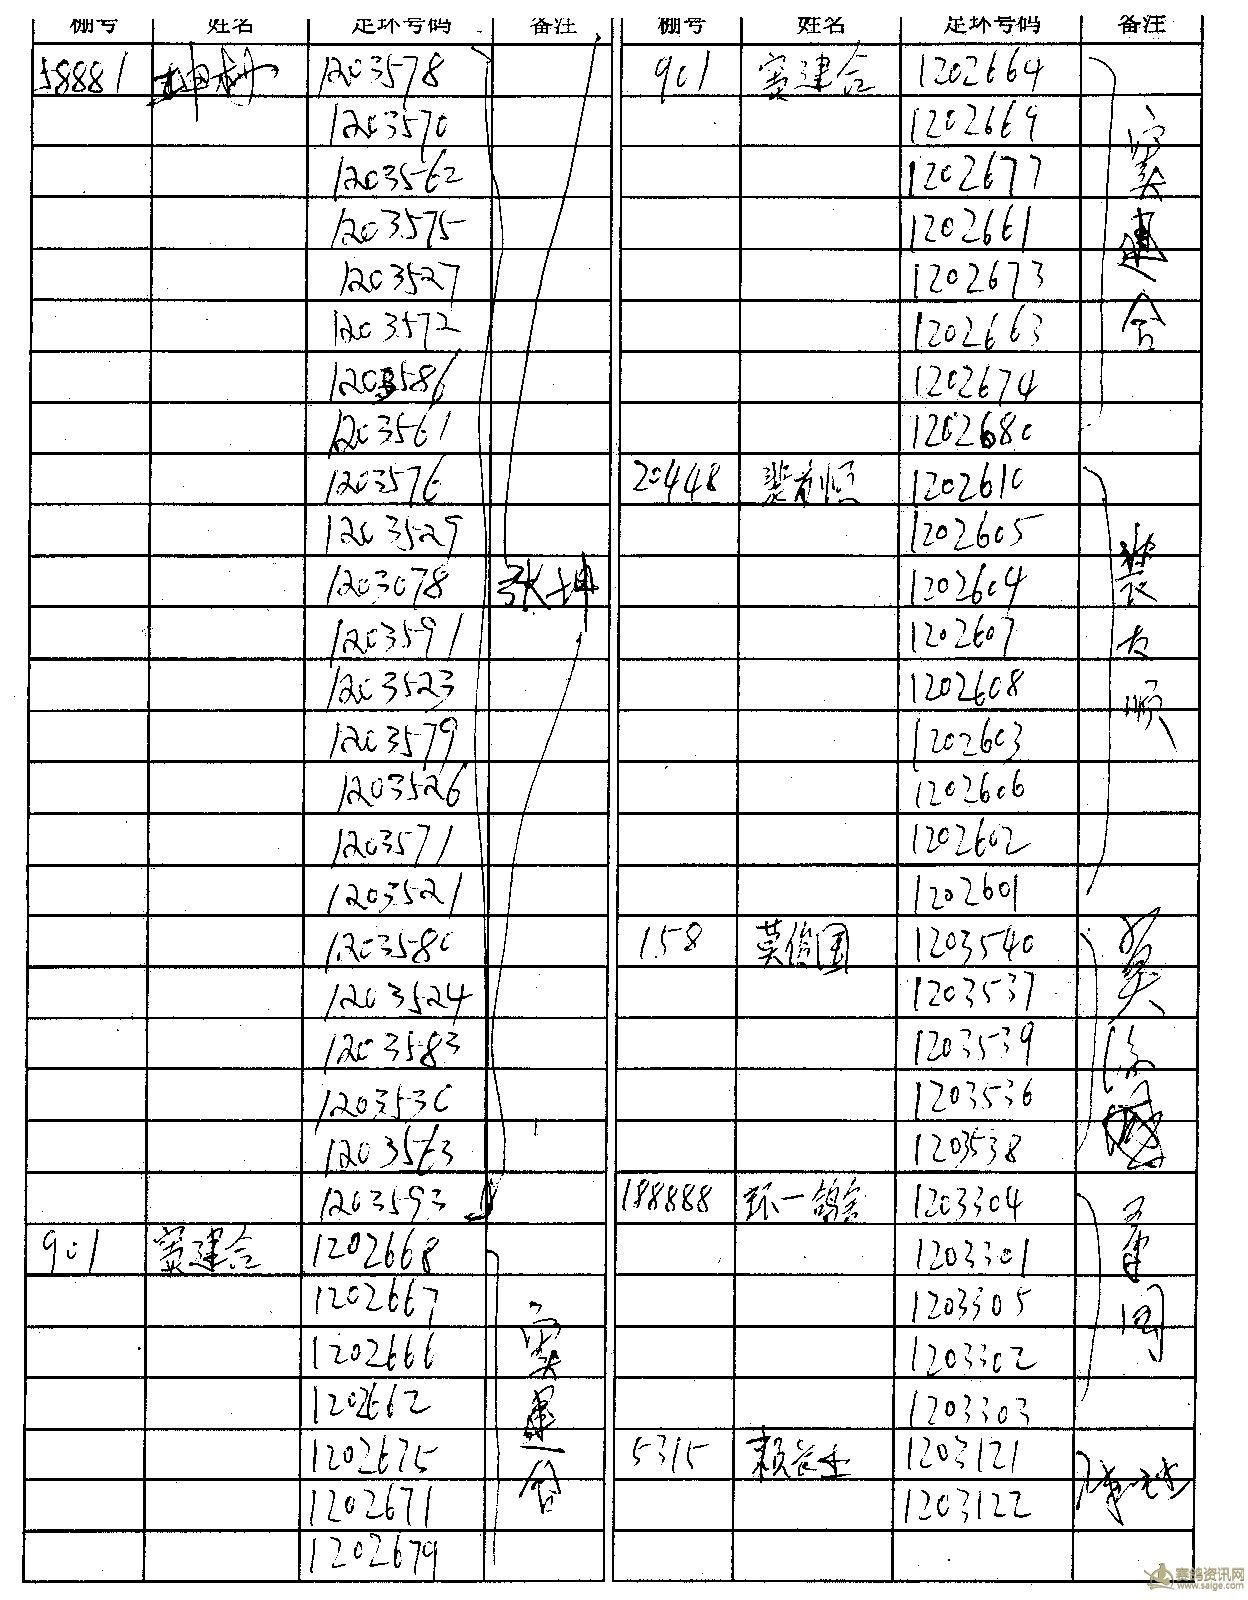 棚号 姓名 足环号码 备注
58881 坤 1203578
1203570
1203562
1203575
1203527
1203572
1203586
1203561
1203576
1203529
1203078 张坤
1203591
1203523
1203579
1203526
1203571
1203521
1203580
1203524
1203583
1203530
1203563
1203593
901 窦建合 1202668
1202667
1202666
1202662
1202675
1202671
1202679
窦建合
棚号 姓名 足环号码 备注
901 窦建合 1202664
1202669
1202677
1202661
1202673
1202663
1202674
1202680
窦建合
20448 1202610
1202605
1202604
1202607
1202608
1202603
1202606
1202602
1202601
顺
158 莫俊国 1203540
1203537
1203539
1203536
1203538
莫
188888 环一鸽舍 1203304
1203301
1203305
1203302
1203303
5315 赖 1203121
1203122
赛鸽资讯网
www.saige.com